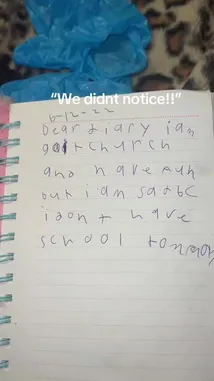 “We didnt notice!!”
6-12-22
Dear diary i am
at church
and have fun
but i am sad bc
i don t have
school tomorow